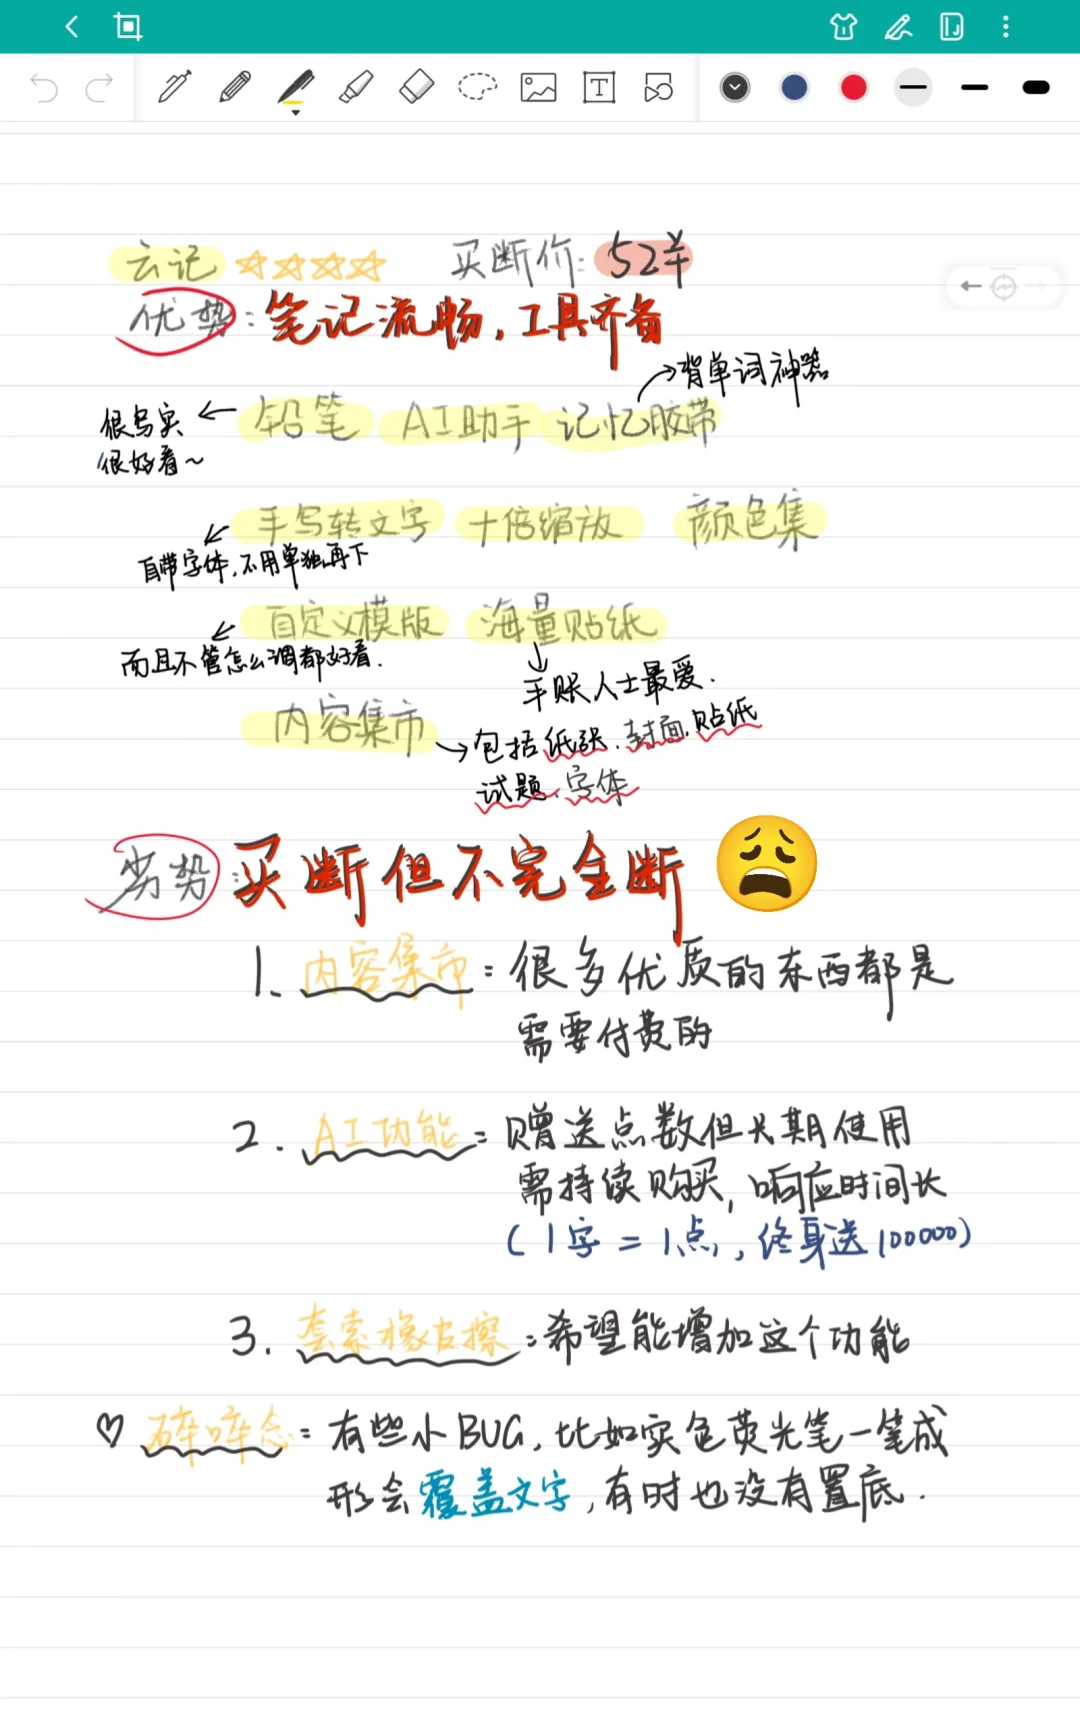 云记 ☆☆☆☆ 买断价:52¥
优势:笔记流畅,工具齐备
→背单词神器
很写实 ← 铅笔 AI助手 记忆胶带
很好看~
手写转文字 十倍缩放 颜色集
自带字体,不用单独再下
自定义模版 海量贴纸
而且不管怎么调都好看.
手账人士最爱.
内容集市 →包括纸张、封面、贴纸
试题、字体
劣势:买断但不完全断 😩
1、内容集市:很多优质的东西都是
需要付费的
2.AI功能:赠送点数但长期使用
需持续购买,响应时间长
(1字=1点,终身送100000)
3.套索橡皮擦:希望能增加这个功能
♡ 碎碎念:有些小BUG,比如实色荧光笔一笔成
形会覆盖文字,有时也没有置底.